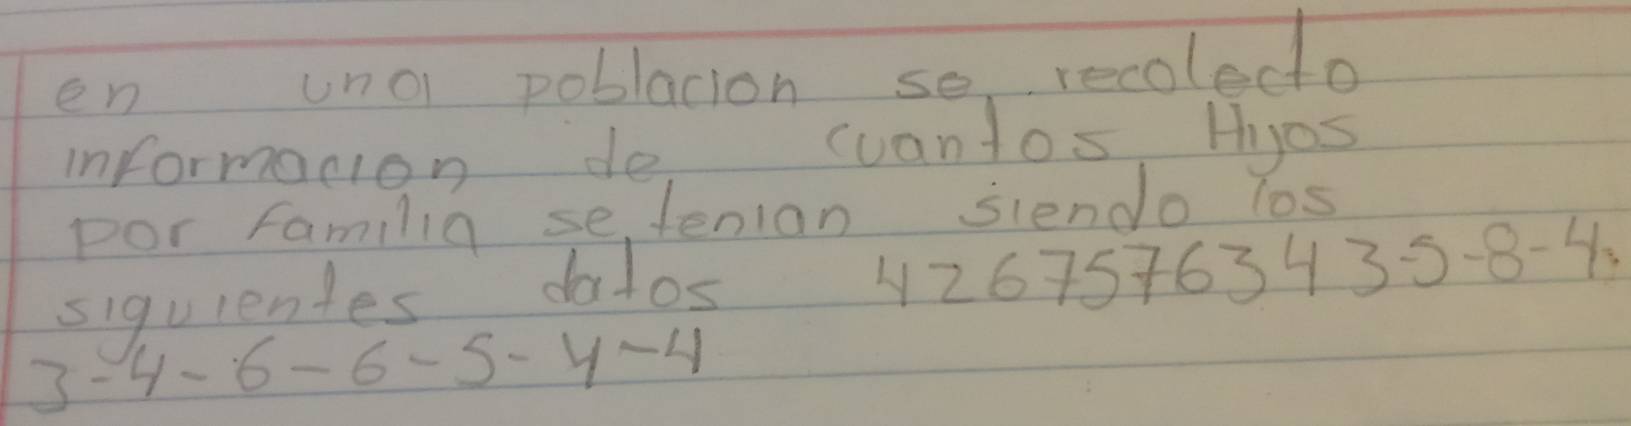 en una poblacion se recolecto
informacion de cuantos Hijos
por familia se tenian siendo los
siguientes datos 4267576343-5-8-4.
3-4-6-6-5-4-4